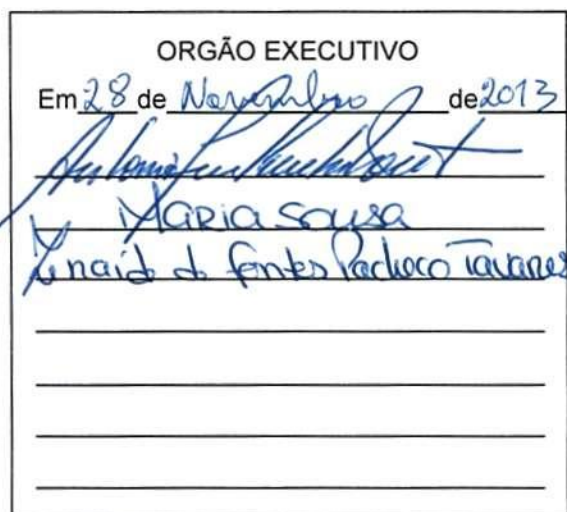 ORGÃO EXECUTIVO
Em 28 de Novembro de 2013
Maria Sousa
de Fontes Pacheco Tavares